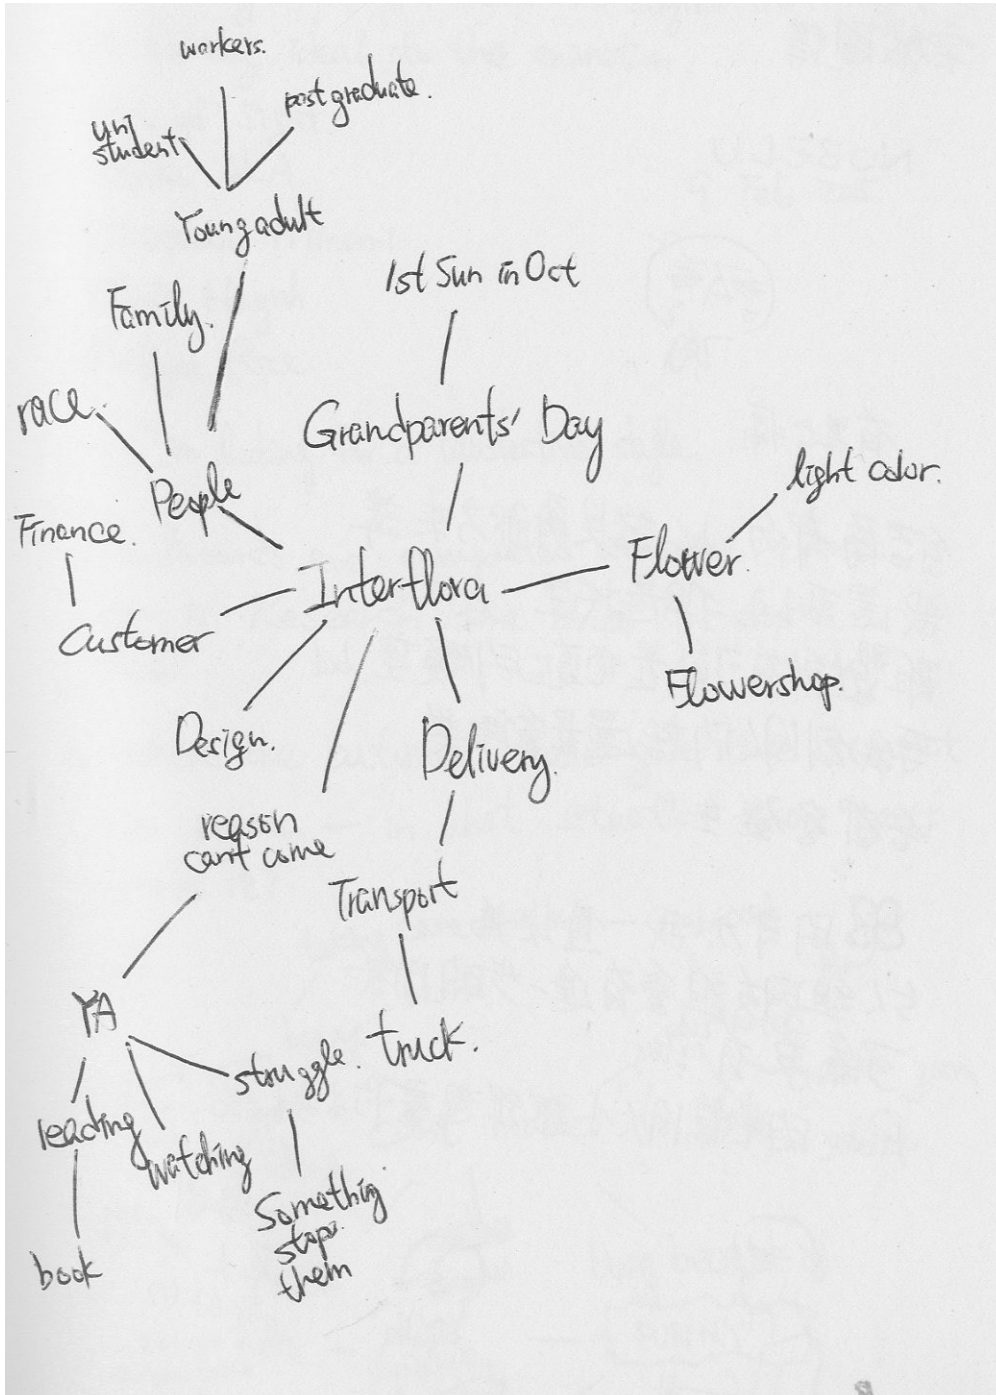 workers.
post graduate.
uni
student
Young adult
1st Sun in Oct
Family.
race.
Grandparents' Day
light color.
People
Finance.
Interflora
Flower.
Customer
Flowershop.
Design.
Delivery.
reason
can't come
Transport
YA
struggle.
truck.
leading
watching
Something
stops
them
book